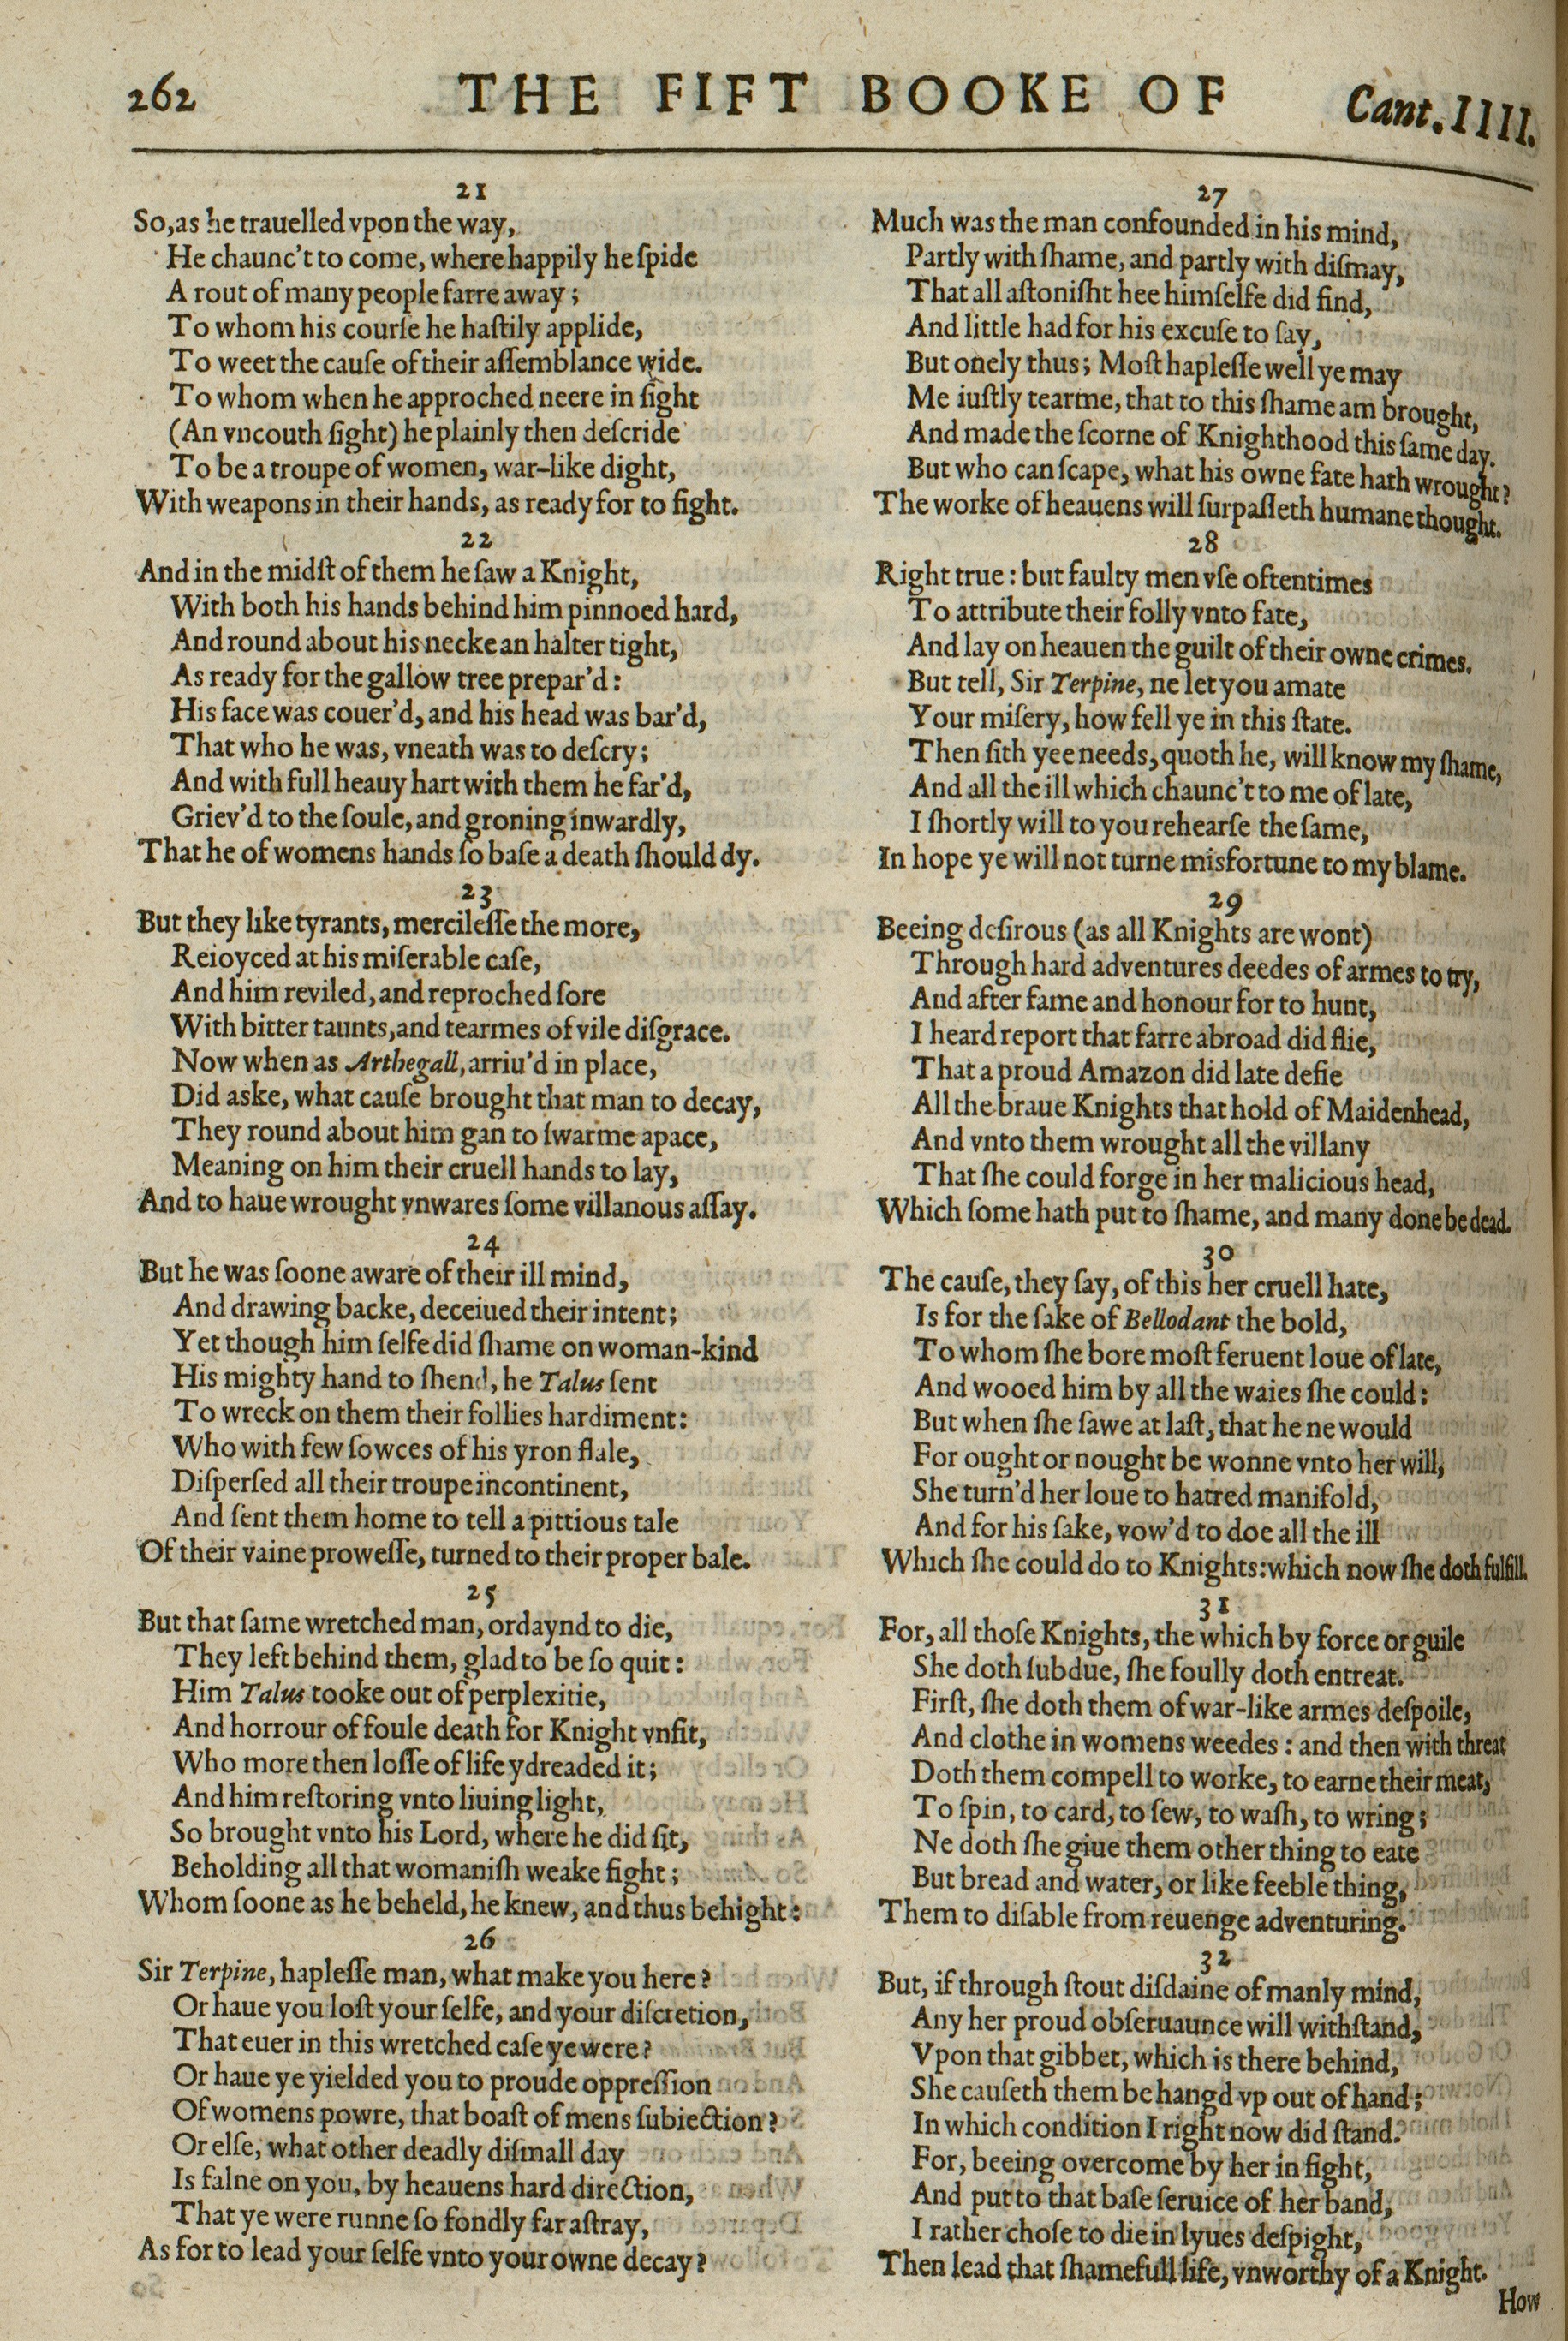 262 THE FIFT BOOKE OF Cant. IIII.
21
So, as he trauelled vpon the way,
He chaunc't to come, where happily he ſpide
A rout of many people farre away;
To whom his courſe he haſtily applide,
To weet the cauſe of their aſſemblance wide.
To whom when he approched neere in ſight
(An vncouth ſight) he plainly then deſcride
To be a troupe of women, war-like dight,
With weapons in their hands, as ready for to fight.
22
And in the midſt of them he ſaw a Knight,
With both his hands behind him pinnoed hard,
And round about his necke an halter tight,
As ready for the gallow tree prepar'd:
His face was couer'd, and his head was bar'd,
That who he was, vneath was to deſcry;
And with full heauy hart with them he far'd,
Griev'd to the ſoule, and groning inwardly,
That he of womens hands ſo baſe a death ſhould dy.
23
But they like tyrants, mercileſſe the more,
Reioyced at his miſerable caſe,
And him reviled, and reproched ſore
With bitter taunts, and tearmes of vile diſgrace.
Now when as Arthegall, arriu'd in place,
Did aske, what cauſe brought that man to decay,
They round about him gan to ſwarme apace,
Meaning on him their cruell hands to lay,
And to haue wrought vnwares ſome villanous aſſay.
24
But he was ſoone aware of their ill mind,
And drawing backe, deceiued their intent;
Yet though him ſelfe did ſhame on woman-kind
His mighty hand to ſhend, he Talus ſent
To wreck on them their follies hardiment:
Who with few ſowces of his yron flale,
Diſperſed all their troupe incontinent,
And ſent them home to tell a pittious tale
Of their vaine proweſſe, turned to their proper bale.
25
But that ſame wretched man, ordaynd to die,
They left behind them, glad to be ſo quit:
Him Talus tooke out of perplexitie,
And horrour of foule death for Knight vnfit,
Who more then loſſe of life ydreaded it;
And him reſtoring vnto liuing light,
So brought vnto his Lord, where he did ſit,
Beholding all that womaniſh weake fight;
Whom ſoone as he beheld, he knew, and thus behight:
26
Sir Terpine, hapleſſe man, what make you here?
Or haue you loſt your ſelfe, and your diſcretion,
That euer in this wretched caſe ye were?
Or haue ye yielded you to proude oppreſſion
Of womens powre, that boaſt of mens ſubiection?
Or elſe, what other deadly diſmall day
Is falne on you, by heauens hard direction,
That ye were runne ſo fondly far aſtray,
As for to lead your ſelfe vnto your owne decay?
27
Much was the man confounded in his mind,
Partly with ſhame, and partly with diſmay,
That all aſtoniſht hee himſelfe did find,
And little had for his excuſe to ſay,
But onely thus; Moſt hapleſſe well ye may
Me iuſtly tearme, that to this ſhame am brought,
And made the ſcorne of Knighthood this ſame day.
But who can ſcape, what his owne fate hath wrought?
The worke of heauens will ſurpaſſeth humane thought.
28
Right true: but faulty men vſe oftentimes
To attribute their folly vnto fate,
And lay on heauen the guilt of their owne crimes.
But tell, Sir Terpine, ne let you amate
Your miſery, how fell ye in this ſtate.
Then ſith yee needs, quoth he, will know my ſhame,
And all the ill which chaunc't to me of late,
I ſhortly will to you rehearſe the ſame,
In hope ye will not turne misfortune to my blame.
29
Beeing deſirous (as all Knights are wont)
Through hard adventures deedes of armes to try,
And after fame and honour for to hunt,
I heard report that farre abroad did flie,
That a proud Amazon did late defie
All the braue Knights that hold of Maidenhead,
And vnto them wrought all the villany
That ſhe could forge in her malicious head,
Which ſome hath put to ſhame, and many done be dead.
30
The cauſe, they ſay, of this her cruell hate,
Is for the ſake of Bellodant the bold,
To whom ſhe bore moſt feruent loue of late,
And wooed him by all the waies ſhe could:
But when ſhe ſawe at laſt, that he ne would
For ought or nought be wonne vnto her will,
She turn'd her loue to hatred manifold,
And for his ſake, vow'd to doe all the ill
Which ſhe could do to Knights: which now ſhe doth fulfill.
31
For, all thoſe Knights, the which by force or guile
She doth ſubdue, ſhe foully doth entreat.
Firſt, ſhe doth them of war-like armes deſpoile,
And clothe in womens weedes: and then with threat
Doth them compell to worke, to earne their meat,
To ſpin, to card, to ſew, to waſh, to wring;
Ne doth ſhe giue them other thing to eate
But bread and water, or like feeble thing,
Them to diſable from reuenge adventuring.
32
But, if through ſtout diſdaine of manly mind,
Any her proud obſeruaunce will withſtand,
Vpon that gibbet, which is there behind,
She cauſeth them be hangd vp out of hand;
In which condition I right now did ſtand.
For, beeing overcome by her in fight,
And put to that baſe ſeruice of her band,
I rather choſe to die in lyues deſpight,
Then lead that ſhamefull life, vnworthy of a Knight.
How